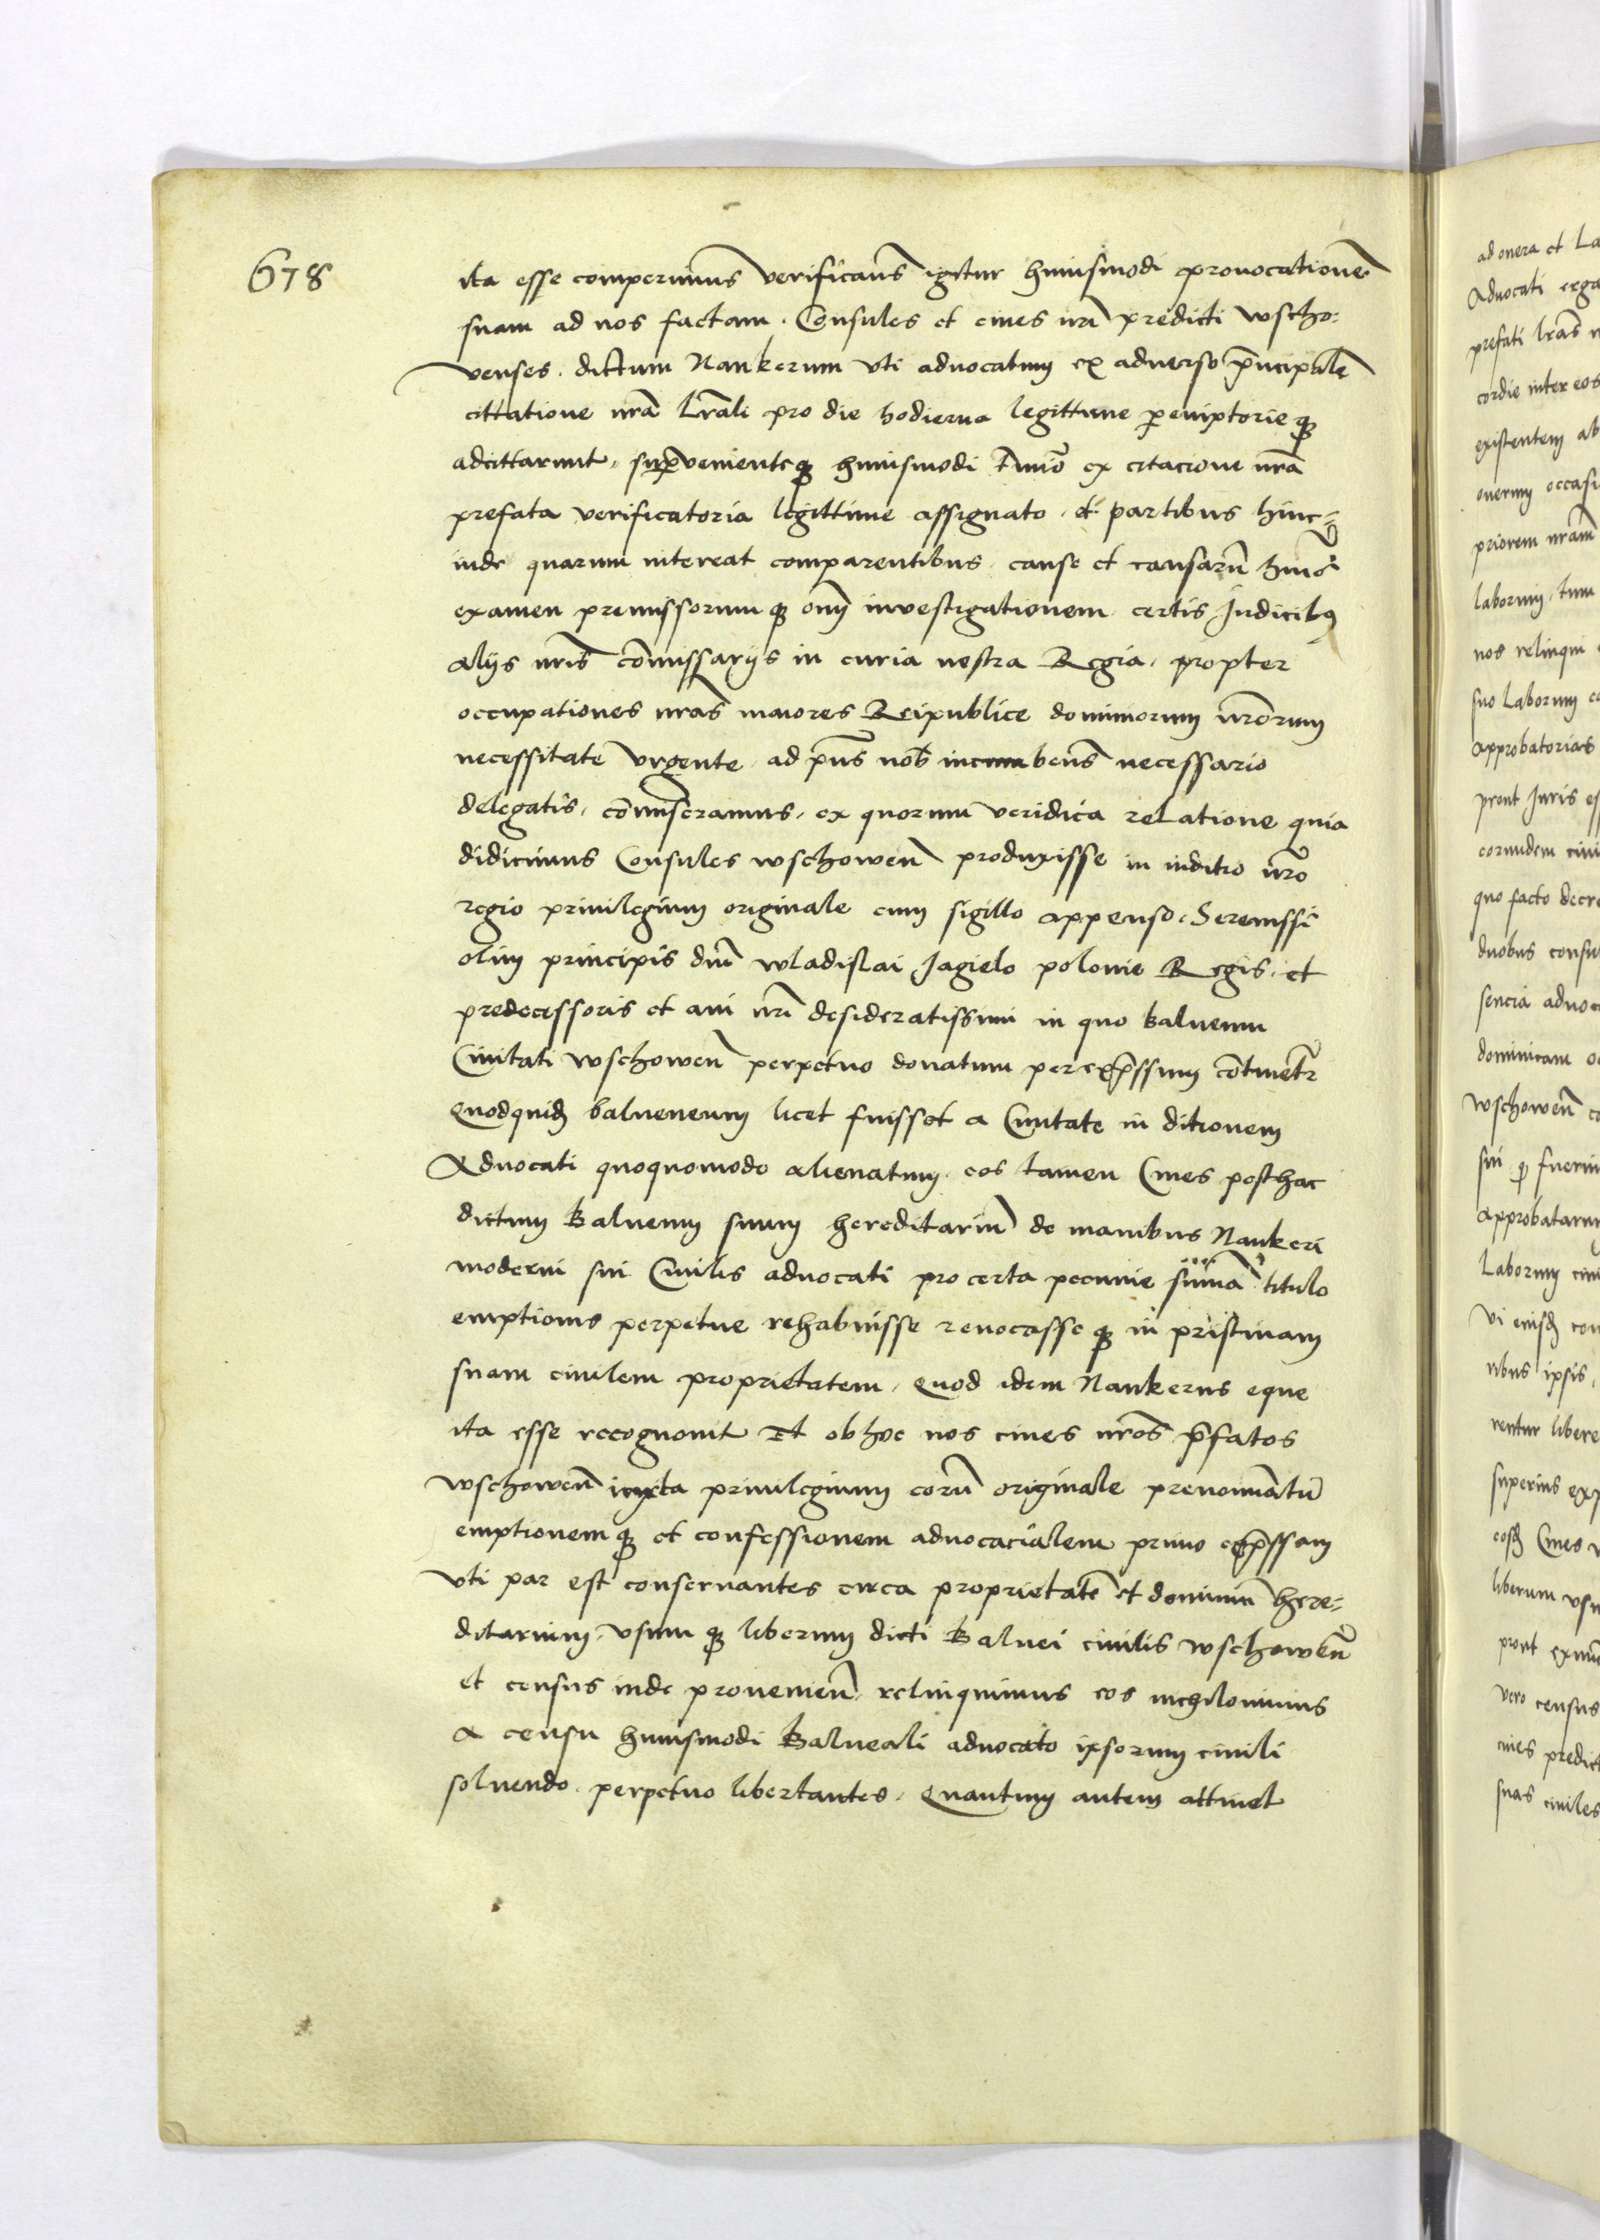 678
ita esse comperimus verificans igitur huiusmodi provocationē
suam ad nos factam. Consules et cives nr̄i predicti wscho=
venses. dictum Nankerum uti advocatum ex adverso p̄ncipalē
cittatione nr̄a lr̄ali pro die hodierna legittime peremptorieqꝫ
adcittarunt, supvenienteqꝫ huiusmodi t̄mīo ex citacione nr̄a
prefata verificatoria legittime assignato, et partibus hinc=
inde quarum intereat comparentibus, cause et causarū huiō
examen premissorumqꝫ om̄ investigationem certis Judicibꝯ
aliis nr̄is cōmissariis in curia nostra Regia, propter
occupationes nr̄as maiores Reipublice dominiorum nr̄orum
necessitate urgente, ad p̄ns nob̄ incumbens necessario
delegatis, cōmiseramus, ex quorum veridica relatione quia
didicimus Consules wschowen̄ produxisse in iuditio nr̄o
regio privilegium originale cum sigillo appenso. Serenissi
olim principis dn̄i wladislai Jagielo polonie Regis, et
predecessoris et avi nr̄i desideratissimi in quo balneum
Civitati wschowen̄ perpetuo donatum per exp̄ssum cōtinetr
Quodquidꝫ balneneum licet fuisset a Civitate in ditionem
Advocati quoquomodo alienatum. eos tamen Cives posthac
dictum Balneum suum hereditariū de manibus Nankeri
moderni sui Civilis advocati pro certa pecunie sum̄a titulo
emptionis perpetue rehabuisse revocasseqꝫ in pristinam
suam civilem proprietatem, Quod idem Nankerus eque
ita esse recognovit Et ob hoc nos cives nr̄os p̄fatos
wschowen̄ iuxta privilegium eorū originale prenominatū
emptionemqꝫ et confessionem advocacialem primo exp̄ssam
uti par est conservantes circa proprietatē et dominiū here=
ditarium, usumqꝫ liberum dicti Balnei civilis wschowen̄
et census inde provenien̄, relinquimus eos nichilominus
a censu huiusmodi Balneali advocato ipsorum civili
solvendo. perpetuo libertantes, Quantum autem attinet
ad onera et La
Advocati erga
prefati lr̄as
cordie inter eos
existentem ab
onerum occasi
priorem nr̄am
laborum, tum
nos relinqui
suo Laborum
approbatorias
prout Juris es
eorundem civi
quo facto decre
duobus consu
sencia advoc
dominicam
wschowen̄ c
sui fuerin
approbatarum
Laborum civi
vi eiusdꝫ con
ribus ipsis,
rentur libere
superius exp
eosdꝫ Cives
liberum usu
prout
vero census
cives predict
suas civiles